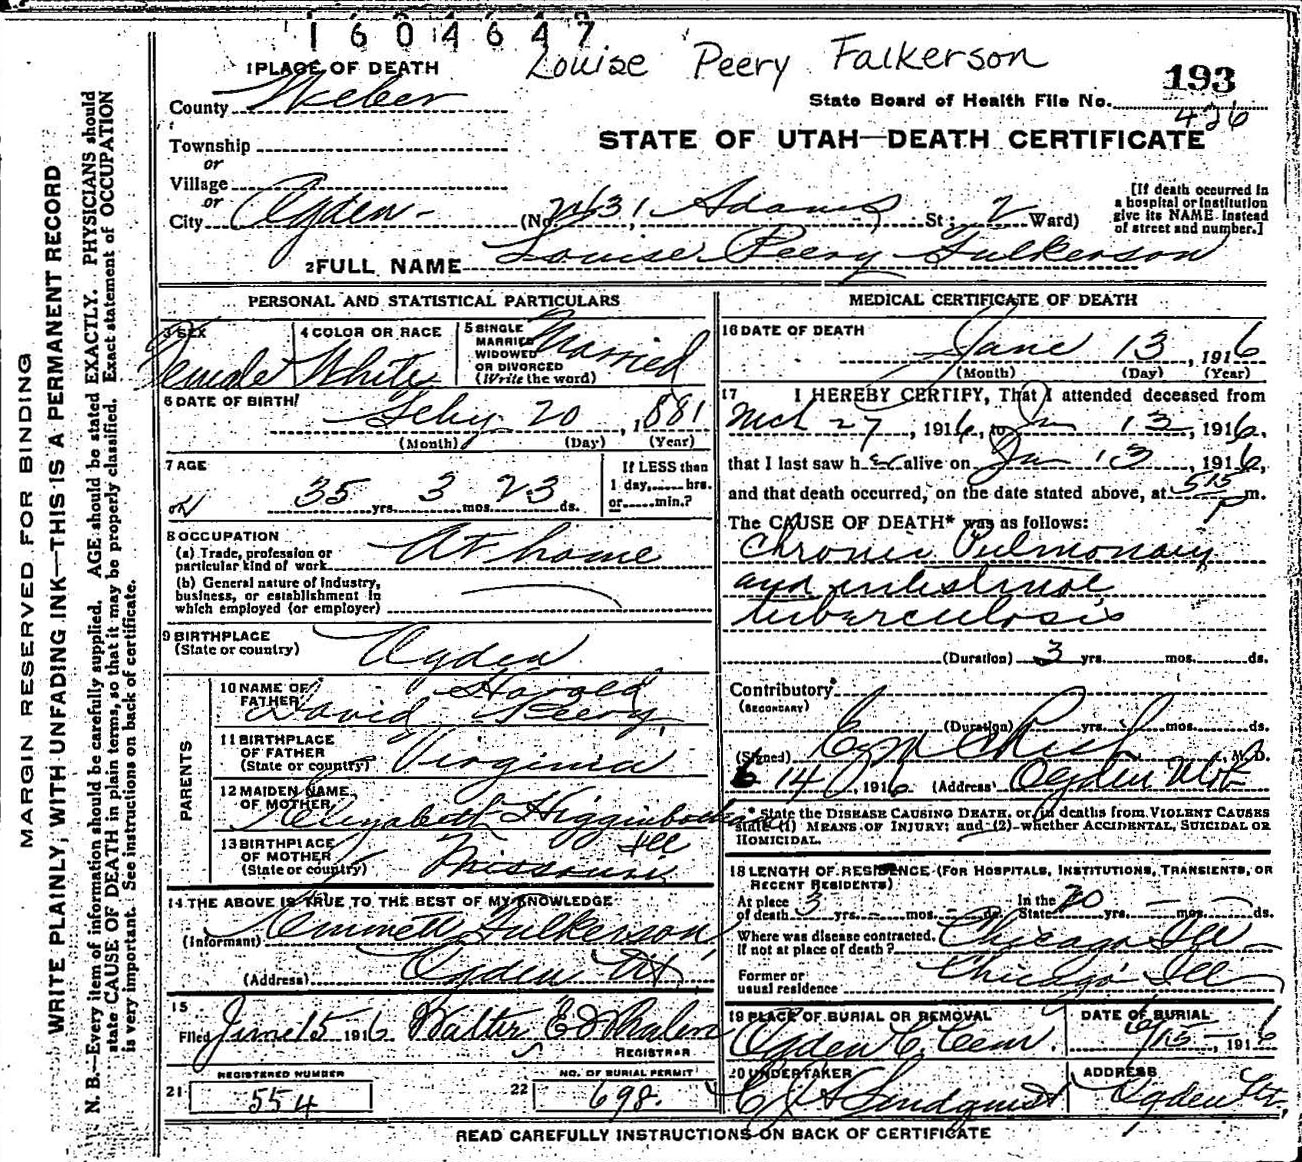 1604647
Louise Peery Falkerson
193
1 PLACE OF DEATH
County Weber
State Board of Health File No.
426
STATE OF UTAH—DEATH CERTIFICATE
Township
or
Village
or
City Ogden - (No. 2431 Adams St; 2 Ward)
[If death occurred in a hospital or institution give its NAME instead of street and number.]
2 FULL NAME Louise Peery Fulkerson
PERSONAL AND STATISTICAL PARTICULARS
3 SEX
Female
4 COLOR OR RACE
White
5 SINGLE
MARRIED
WIDOWED
OR DIVORCED
(Write the word)
Married
6 DATE OF BIRTH
Feby 20, 1881
(Month) (Day) (Year)
7 AGE
35 yrs. 3 mos. 23 ds.
If LESS than
1 day, hrs.
or min.?
8 OCCUPATION
(a) Trade, profession or
particular kind of work At home
(b) General nature of Industry,
business, or establishment in
which employed (or employer)
9 BIRTHPLACE
(State or country) Ogden
PARENTS
10 NAME OF
FATHER
David Harold Peery
11 BIRTHPLACE
OF FATHER
(State or country) Virginia
12 MAIDEN NAME
OF MOTHER
Elizabeth Higginbotham
13 BIRTHPLACE
OF MOTHER
(State or country) Missouri
Ill
14 THE ABOVE IS TRUE TO THE BEST OF MY KNOWLEDGE
(Informant) Emmett Fulkerson
(Address) Ogden Ut
15
Filed June 15 1916 Walter E Whalen
REGISTRAR
REGISTERED NUMBER
21 554
NO. OF BURIAL PERMIT
22 698.
MEDICAL CERTIFICATE OF DEATH
16 DATE OF DEATH
June 13, 1916
(Month) (Day) (Year)
17 I HEREBY CERTIFY, That I attended deceased from
Mch 27, 1916, to Jun 13, 1916,
that I last saw her alive on Jun 13, 1916,
and that death occurred, on the date stated above, at 5 15 P m.
The CAUSE OF DEATH* was as follows:
Chronic Pulmonary
and intestinal
tuberculosis
(Duration) 3 yrs. mos. ds.
Contributory
(SECONDARY)
(Duration) yrs. mos. ds.
(Signed) M. D.
6 14, 1916 (Address) Ogden Utah
* State the DISEASE CAUSING DEATH, or, in deaths from VIOLENT CAUSES
state (1) MEANS OF INJURY; and (2) whether ACCIDENTAL, SUICIDAL OR
HOMICIDAL.
18 LENGTH OF RESIDENCE (FOR HOSPITALS, INSTITUTIONS, TRANSIENTS, OR
RECENT RESIDENTS)
At place
of death 3 yrs. – mos. – ds.
In the
State 20 yrs. – mos. – ds.
Where was disease contracted,
If not at place of death? Chicago Ill
Former or
usual residence Chicago Ill
19 PLACE OF BURIAL OR REMOVAL
Ogden C. Cem.
DATE OF BURIAL
6/15, 1916
20 UNDERTAKER
Lindquist
ADDRESS
Ogden Ut.
READ CAREFULLY INSTRUCTIONS ON BACK OF CERTIFICATE
MARGIN RESERVED FOR BINDING
WRITE PLAINLY, WITH UNFADING INK—THIS IS A PERMANENT RECORD
N. B.—Every item of information should be carefully supplied. AGE should be stated EXACTLY. PHYSICIANS should
state CAUSE OF DEATH in plain terms, so that it may be properly classified. Exact statement of OCCUPATION
is very important. See instructions on back of certificate.